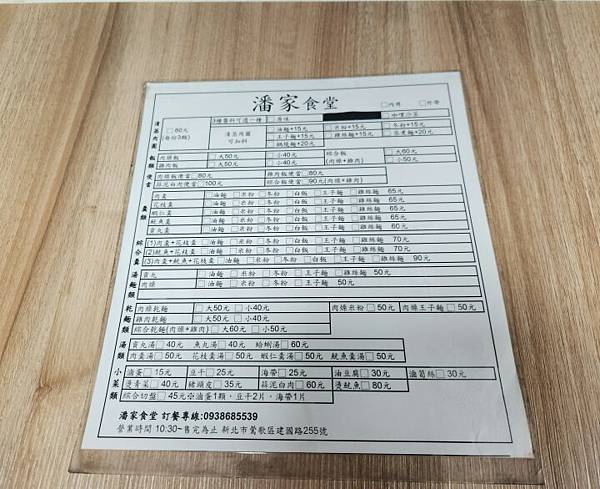 潘家食堂 □內用 □外帶
清蒸肉圓 □60元 (每份3顆) 3種醬料可選一種 □原味 □咖哩沙茶
清蒸肉圓可加料 □油麵+15元 □米粉+15元 □冬粉+15元
□王子麵+15元 □雞絲麵+15元 □意麵+20元
□鍋燒麵+20元
飯類 肉燥飯 □大50元 □小40元 綜合飯(肉燥+雞肉) □大60元
雞肉飯 □大50元 □小40元 □小50元
便當 肉燥飯便當□80元 雞肉飯便當□80元
蒜泥白肉便當□100元 綜合飯便當□90元(肉燥+雞肉)
羹類 肉羹 □油麵 □米粉 □冬粉 □白飯 □王子麵 □雞絲麵 65元
花枝羹 □油麵 □米粉 □冬粉 □白飯 □王子麵 □雞絲麵 65元
蝦仁羹 □油麵 □米粉 □冬粉 □白飯 □王子麵 □雞絲麵 65元
魷魚羹 □油麵 □米粉 □冬粉 □白飯 □王子麵 □雞絲麵 65元
貢丸羹 □油麵 □米粉 □冬粉 □白飯 □王子麵 □雞絲麵 60元
綜合羹 (1)肉羹+花枝羹 □油麵 □米粉 □冬粉 □白飯 □王子麵 □雞絲麵 70元
(2)魷魚+花枝羹 □油麵 □米粉 □冬粉 □白飯 □王子麵 □雞絲麵 70元
(3)肉羹+魷魚+花枝羹□油麵 □米粉 □冬粉 □白飯 □王子麵 □雞絲麵 90元
湯麵類 貢丸 □油麵 □米粉 □冬粉 □王子麵 □雞絲麵 50元
肉燥 □油麵 □米粉 □冬粉 □王子麵 50元
乾麵類 肉燥乾麵 □大50元 □小40元 肉燥米粉□50元 肉燥王子麵□50元
雞肉乾麵 □大50元 □小40元
綜合乾麵(肉燥+雞肉) □大60元 □小50元
湯類 貢丸湯□40元 魚丸湯□40元 蛤蜊湯□60元
肉羹湯□50元 花枝羹湯□50元 蝦仁羹湯□50元 魷魚羹湯□50元
小菜類 滷蛋□15元 豆干□25元 海帶□25元 油豆腐□30元 滷筍絲□30元
燙青菜□40元 豬頭皮□35元 蒜泥白肉□60元 燙魷魚□80元
綜合切盤□45元※滷蛋1顆，豆干2片，海帶1片
潘家食堂 訂餐專線:0938685539
營業時間 10:30~售完為止 新北市鶯歌區建國路255號